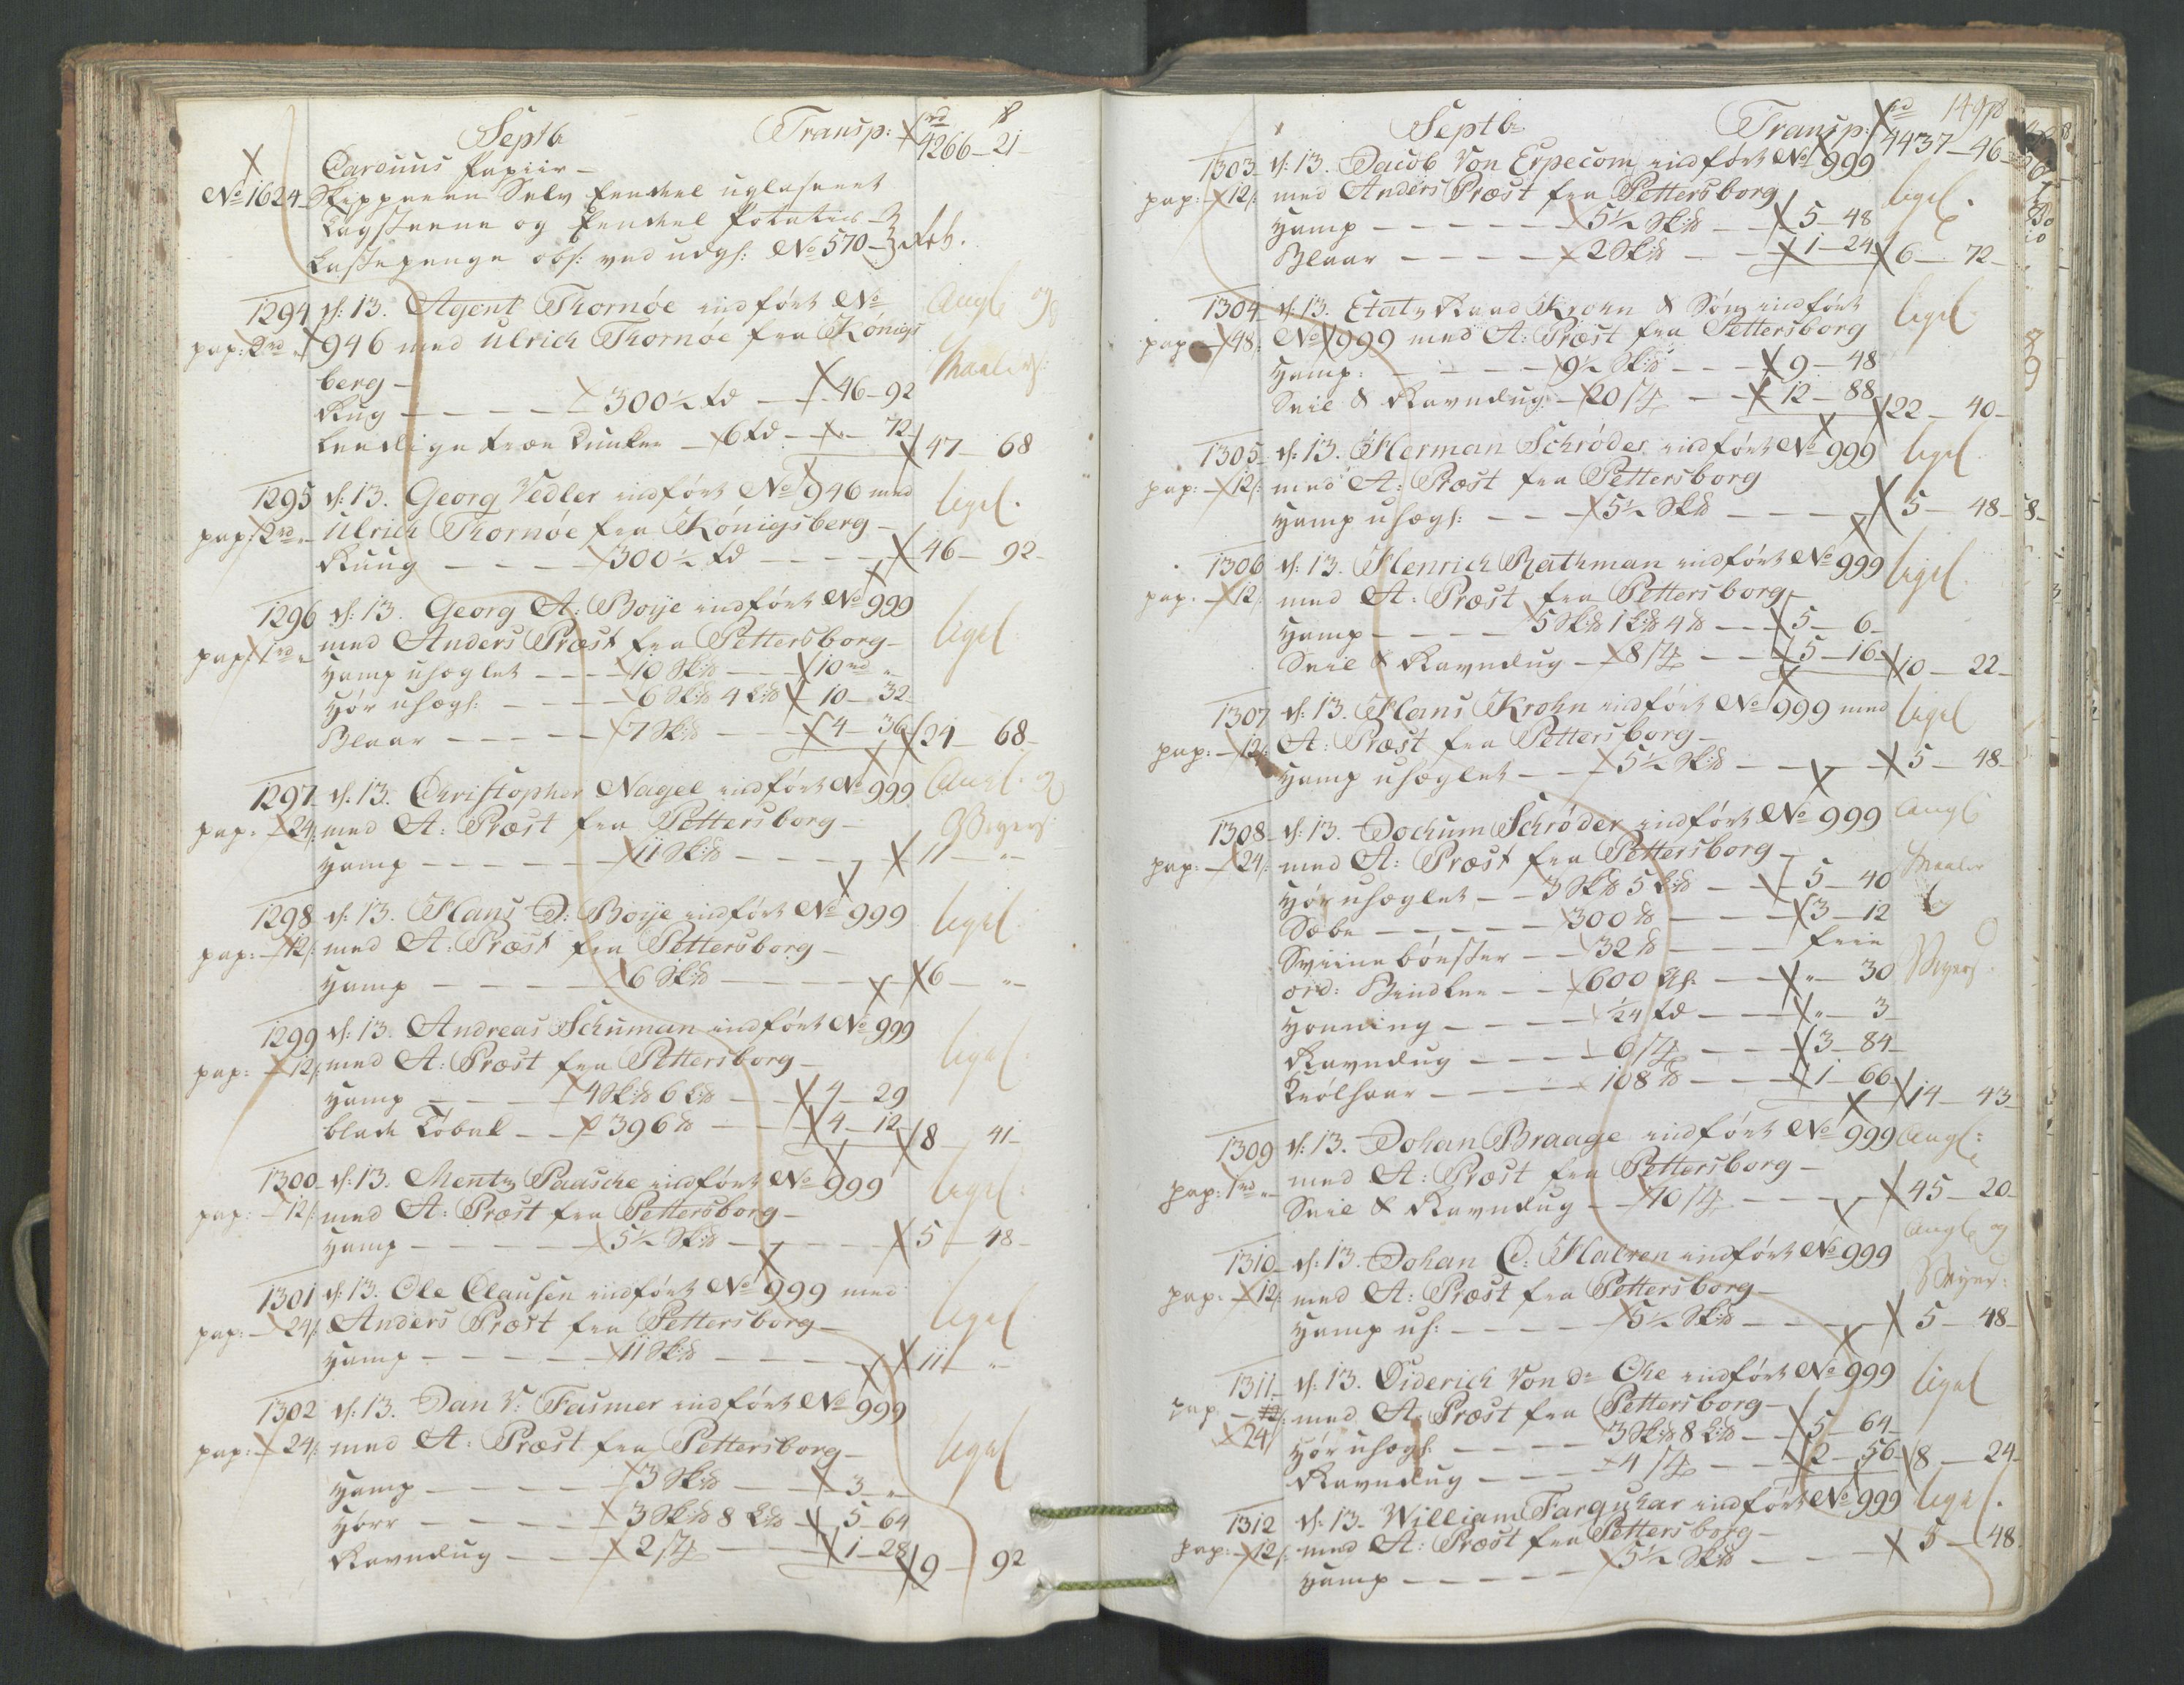 Septb Transp: rd ß
4266 - 21 -
Carduus Papiir -
No 1624 Skipperen Selv
Lastepenge obs: ved udgf: No 570
1294 d: 13. Agent Thornöe indfört No
pap: 2 rd 946 med Ulrich Thornöe fra Königs
berg -
Rug - - - - 300½ td - 46 - 92
6 td - " - 72 47 - 68
1295 d: 13. Georg Vedler indfört No 946 med
pap: 2 rd Ulrich Thornöe fra Königsberg -
Ruug - - - - 300½ td - - - - 46 - 92 -
1296 d: 13. Georg A: Boije indfört No 999
pap: 1 rd med Anders Præst fra Pettersborg -
Hamp uheglet - - - 10 Sk℔ - - 10 rd "
Hör uhegl: - - - 6 Sk℔ 4 L℔ 10 - 32
Blaar - - - - 7 Sk℔ - - - 4 - 36 24 - 68 -
1297 d: 13. Christopher Nagel indfört No 999
pap: - 24/: med A: Præst fra Pettersborg -
Hamp - - - - - 11 Sk℔ - - - - 11 - "
1298 d: 13. Hans D: Boije indfört No 999
pap: - 12/: med A: Præst fra Pettersborg -
Hamp - - - - - 6 Sk℔ - - - - 6 - "
1299 d: 13. Andreas Schuman indfört No 999
pap: - 12/: med A: Præst fra Pettersborg -
Hamp - - - - 4 Sk℔ 6 L℔ - - 4 - 29
blade Tobak - - 396 ℔ - - - 4 - 12 8 - 41 -
1300 d: 13. Mentz Paasche indfört No 999
pap: - 12/: med A: Præst fra Pettersborg -
Hamp - - - - - 5½ Sk℔ - - - - 5 - 48 -
1301 d: 13. Ole Clausen indfört No 999 med
pap: - 24/: Anders Præst fra Pettersborg -
Hamp - - - - - 11 Sk℔ - - - - 11 - "
1302 d: 13. Dan V: Fasmer indfört No 999
pap: - 24/: med A: Præst fra Pettersborg -
Hamp - - - - - 3 Sk℔ - - - 3 - "
Hörr - - - - - 3 Sk℔ 8 L℔ - 5 - 64
Ravndug - - - 2 / - - - 1 - 28 9 - 92
Septb Transp: rd
4437 - 46 -
1303 d: 13. Jacob Von Erpecom indfört No 999
pap: - 12/: med Anders Præst fra Pettersborg
Hamp - - - - - 5½ Sk℔ - - 5 - 48
Blaar - - - - - 2 Sk℔ - - 1 - 24 6 - 72 -
1304 d: 13. Etats Raad Krohn & Sön indfört
pap: - 48: No 999 med A: Præst fra Pettersborg
Hamp: - - - - 9½ Sk℔ - - - 9 - 48
Seil & Ravndug - 20 / - - 12 - 88 22 - 40 -
1305 d: 13. Herman Schröder indfört No 999
pap: - 12/: med A: Præst fra Pettersborg
Hamp uhegl: - - - 5½ Sk℔ - - - - 5 - 48 -
1306 d: 13. Henrich Rathman indfört No 999
pap: - 12/: med A: Præst fra Pettersborg -
Hamp - - - - 5 Sk℔ 1 L℔ 4 ℔ - - 5 - 6 -
Seil & Ravndug - 8 / - - 5 - 16 10 - 22 -
1307 d: 13. Hans Krohn indfört No 999 med
pap: - 12/: A: Præst fra Pettersborg -
Hamp uheglet - - - 5½ Sk℔ - - - - 5 - 48 -
1308 d: 13. Jochum Schröder indfört No 999
pap: - 24/: med A: Præst fra Pettersborg -
Hör uheglet - - 3 Sk℔ 5 L℔ - - 5 - 40
Sæbe - - - - - 300 ℔ - - - 3 - 12
Sviine börster - - 32 ℔ - - - frie
ord: - - 600 - - " - 30
Honning - - - - 1/24 td - - " - 3
Ravndug - - - - 6 / - - - 3 - 84
Krölhaar - - - - 108 ℔ - - - 1 - 66 14 - 43 -
1309 d: 13. Johan Braage indfört No 999
pap: 1 rd " med A: Præst fra Pettersborg -
Seil & Ravndug - - 70 / - - - - 45 - 20 -
1310 d: 13. Johan C: Halren indfört No 999
pap: - 12/: med A: Præst fra Pettersborg -
Hamp uh: - - - - 5½ Sk℔ - - - - 5 - 48 -
1311 d: 13. Diderich Von dr Ohe indfört No 999
pap: - 12/: med A: Præst fra Pettersborg -
24/ Hör uhegl: - - - - 3 Sk℔ 8 L℔ - - 5 - 64 -
Ravndug - - - - 4 / - - 2 - 56 8 - 24 -
1312 d: 13. William Farquhar indfört No 999
pap: - 12/: med A: Præst fra Pettersborg -
Hamp - - - - - 5½ Sk℔ - - - - 5 - 48